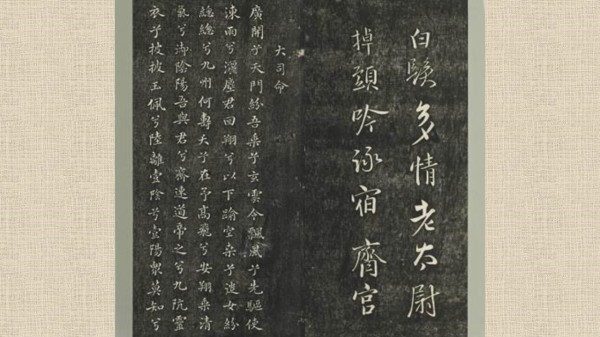 白髮多情老太尉
掉頭吟詠宿齋宮
大司命
廣開兮天門紛吾乘兮玄雲令飄風兮先驅使
涷雨兮灑塵君回翔兮以下踰空桑兮從女紛
總總兮九州何壽夭兮在予高飛兮安翔乘清
氣兮御陰陽吾與君兮齋速道帝之兮九阬靈
衣兮披披玉佩兮陸離壹陰兮壹陽衆莫知兮